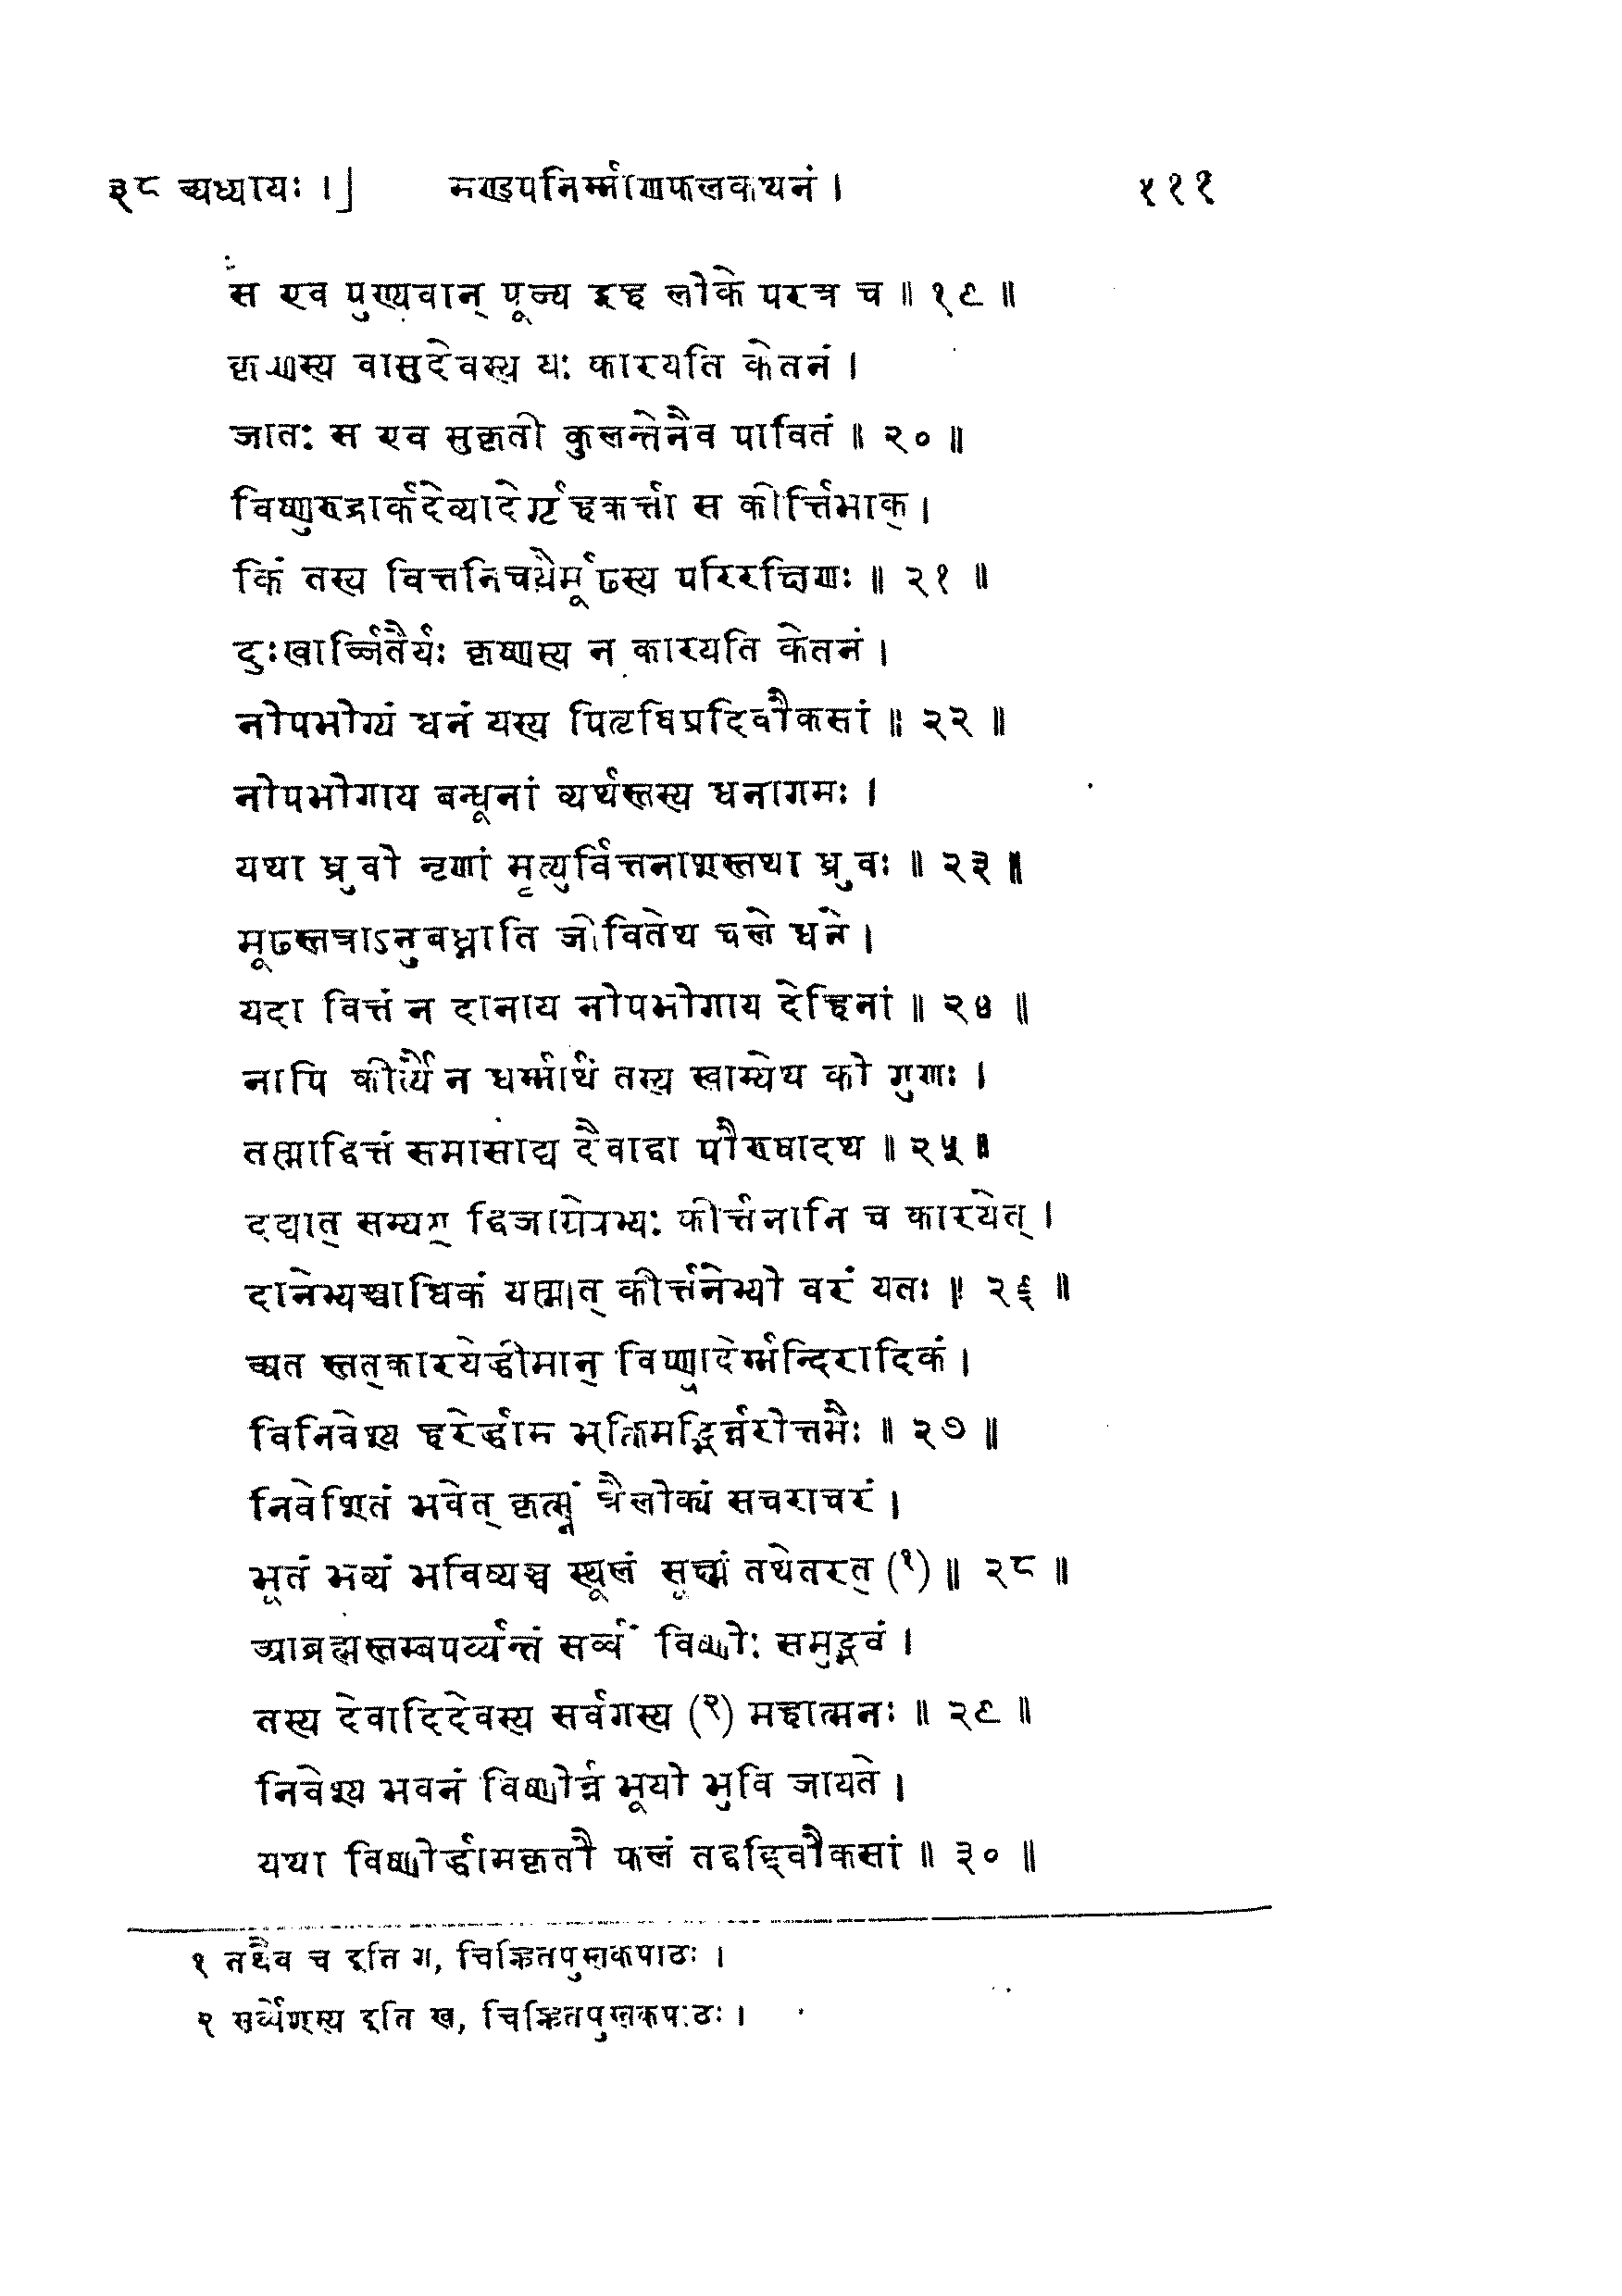 ३८ अध्यायः ।] मण्डपनिर्म्माणफलकथनं । १११
स एव पुण्यवान् पूज्य इह लोके परत्र च ॥ १९ ॥
कृष्णस्य वासुदेवस्य यः कारयति केतनं ।
जातः स एव सुकृती कुलन्तेनैव पावितं ॥ २० ॥
विष्णुरुद्रार्कदेव्यादेर्गृहकर्त्ता स कीर्त्तिभाक् ।
किं तस्य वित्तनिचयैर्मूढस्य परिरक्षिणः ॥ २१ ॥
दुःखार्ज्जितैर्यः कृष्णस्य न कारयति केतनं ।
नोपभोग्यं धनं यस्य पितृविप्रदिवौकसां ॥ २२ ॥
नोपभोगाय बन्धूनां व्यर्थस्तस्य धनागमः ।
यथा ध्रुवो नृणां मृत्युर्वित्तनाशस्तथा ध्रुवः ॥ २३ ॥
मूढस्तत्राऽनुबध्नाति जीवितेथ चले धने ।
यदा वित्तं न दानाय नोपभोगाय देहिनां ॥ २४ ॥
नापि कीर्त्यै न धर्म्मार्थं तस्य स्वाम्येथ को गुणः ।
तस्माद्वित्तं समासाद्य दैवाद्वा पौरुषादथ ॥ २५ ॥
दद्यात् सम्यग् द्विजाग्रेत्रभ्यः कीर्त्तनानि च कारयेत् ।
दानेभ्यश्चाधिकं यस्मात् कीर्त्तनेभ्यो वरं यतः ॥ २६ ॥
अत स्तत्कारयेद्धीमान् विष्ण्वादेर्म्मन्दिरादिकं ।
विनिवेश्य हरेर्द्धाम भक्तिमद्भिर्न्नरोत्तमैः ॥ २७ ॥
निवेशितं भवेत् कृत्स्नं त्रैलोक्यं सचराचरं ।
भूतं भव्यं भविष्यञ्च स्थूलं सूक्ष्मं तथेतरत् (१) ॥ २८ ॥
आब्रह्मस्तम्बपर्य्यन्तं सर्व्वं विष्णोः समुद्भवं ।
तस्य देवादिदेवस्य सर्वगस्य (२) महात्मनः ॥ २९ ॥
निवेश्य भवनं विष्णोर्न्न भूयो भुवि जायते ।
यथा विष्णोर्द्धामकृतौ फलं तद्वद्दिवौकसां ॥ ३० ॥
१ तथैव च इति ग, चिह्नितपुस्तकपाठः ।
२ सर्व्वेशस्य इति ख, चिह्नितपुस्तकपाठः ।